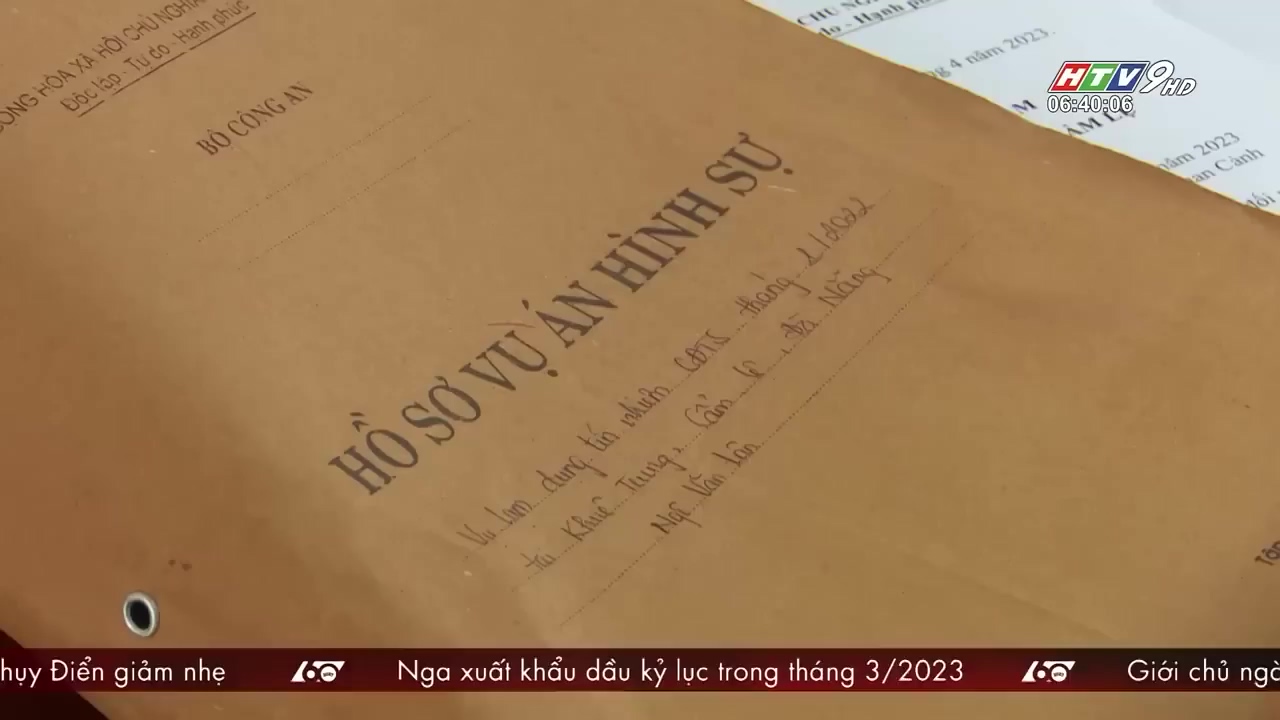 CỘNG HÒA XÃ HỘI CHỦ NGHĨA
Độc lập - Tự do - Hạnh phúc
BỘ CÔNG AN
HỒ SƠ VỤ ÁN HÌNH SỰ
Vụ lạm dụng tín nhiệm CĐTS tháng 1/2022
tại Khuê Trung, Cẩm Lệ, Đà Nẵng
Ngô Văn Lân
CHỦ NG
do - Hạnh
g 4 năm 2023.
M
ẨM LỆ
năm 2023
an Cảnh
HTV9 HD
06:40:06
hụy Điển giảm nhẹ
60 giây
Nga xuất khẩu dầu kỷ lục trong tháng 3/2023
60 giây
Giới chủ ngâ